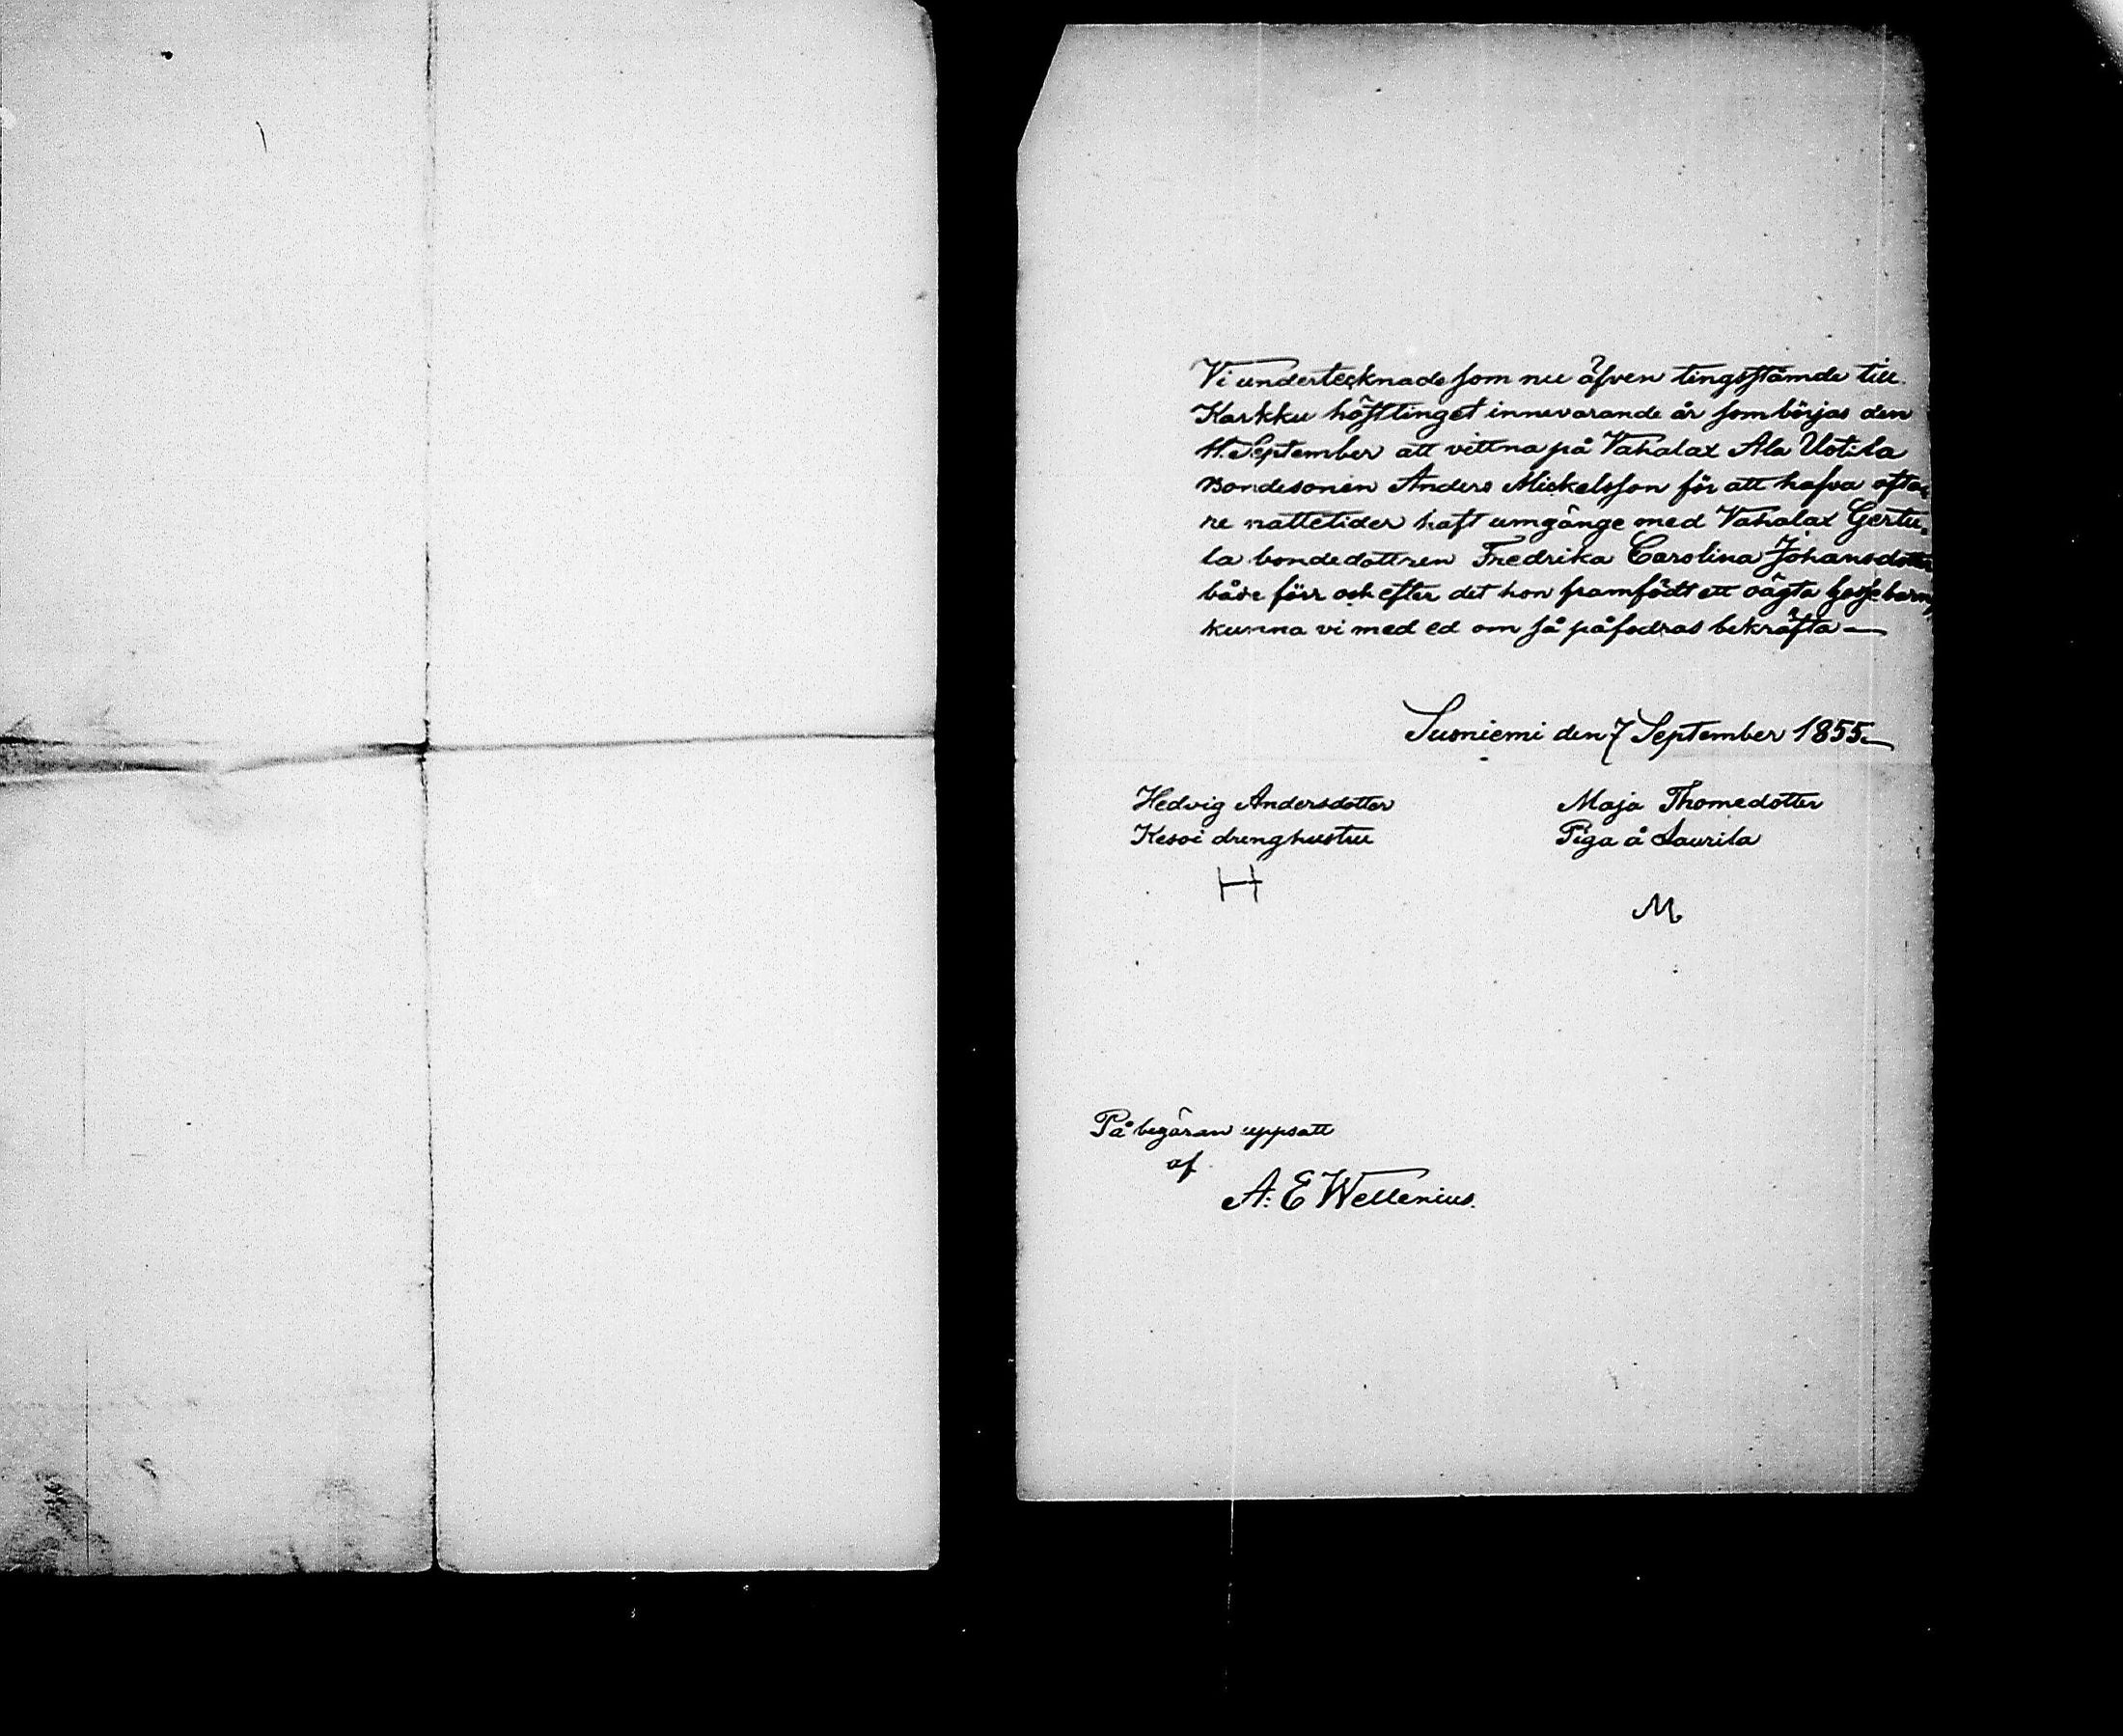 Vi undertecknade som nu äfven tingsstämde till
Karkku hösttinget innevarande år som börjas den
11. September att vittna på Vahalax Ala Uotila
Bondesonen Anders Mickelsson för att hafva ofta-
re nattetider haft umgänge med Vahalax Gertu-
la bondedottren Fredrika Carolina Johansdotter
både förr och efter det hon framfödt ett oägta gossebarn,
kunna vi med ed om så påfodras bekräfta —
Suoniemi den 7 September 1855.
Hedvig Andersdotter
Kesoi drenghustru
H
Maja Thomedotter
Piga å Laurila
M
På begäran uppsatt
af
A: E Wellenius.